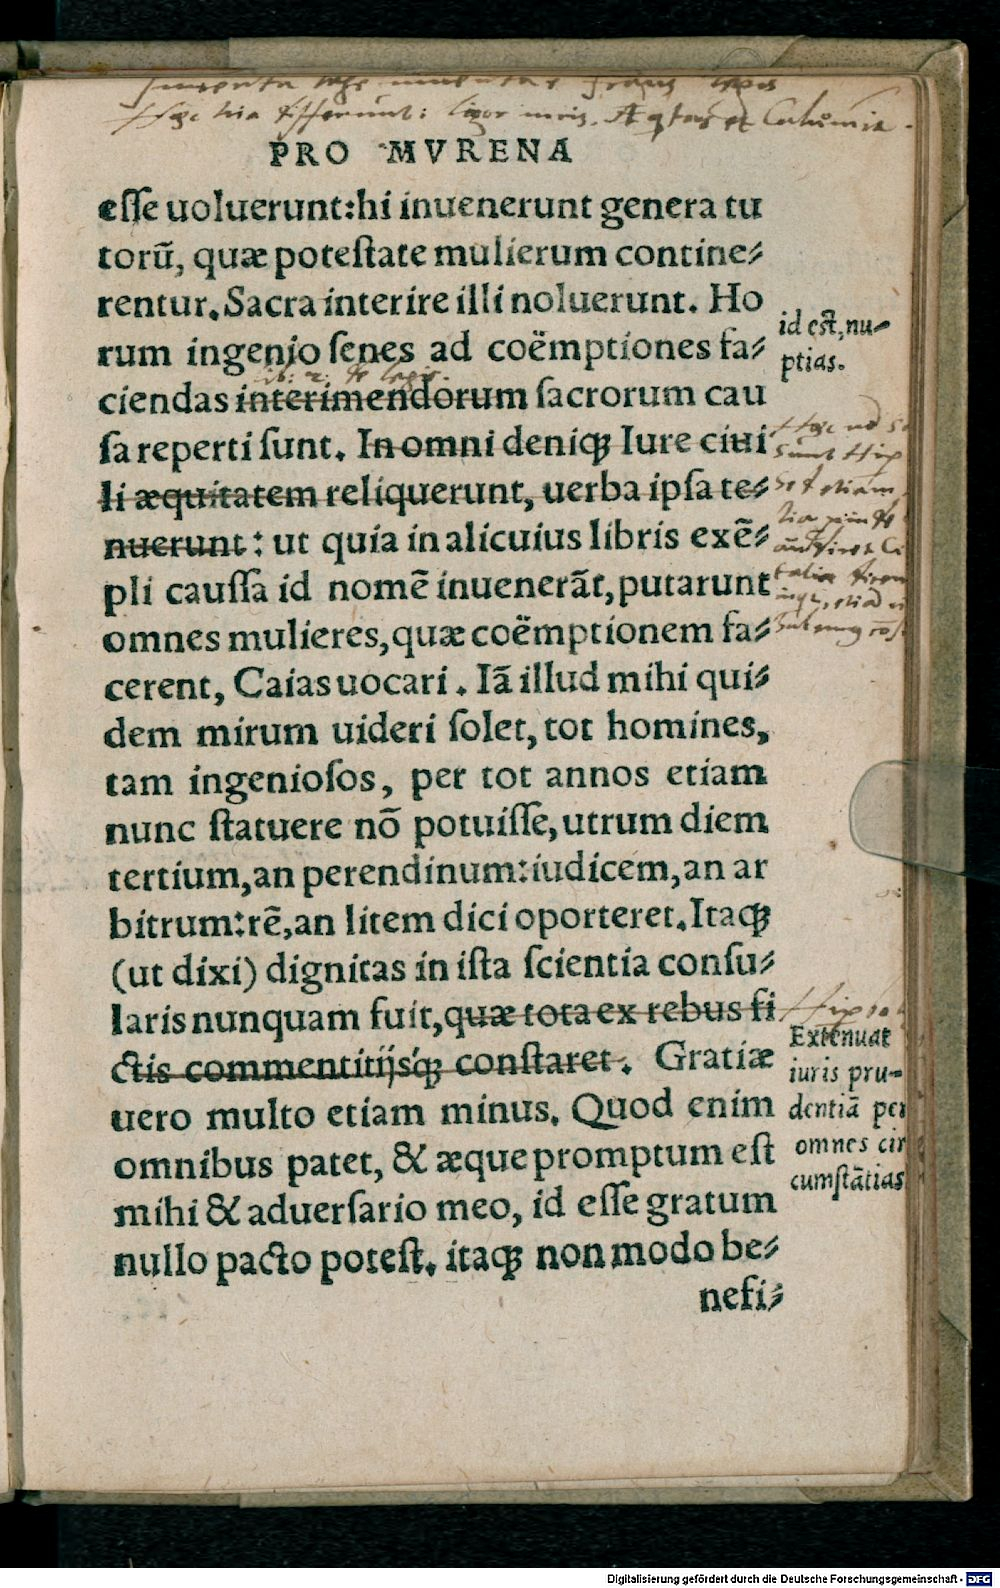 Hæc tria differunt: rigor iuris. Æquitas et Calumnia.
PRO MVRENA
eſſe uoluerunt:hi inuenerunt genera tu
torū, quæ poteſtate mulierum contine⸗
rentur. Sacra interire illi noluerunt. Ho
rum ingenio ſenes ad coëmptiones fa⸗
id eſt, nu⸗
ptias.
lib: 2. de legib.
ciendas interimendorum ſacrorum cau
ſa reperti ſunt. In omni deniqꝫ Iure ciui
li æquitatem reliquerunt, uerba ipſa te⸗
nuerunt: ut quia in alicuius libris exē⸗
pli cauſſa id nomē inuenerāt, putarunt
omnes mulieres, quæ coëmptionem fa⸗
cerent, Caias uocari. Iā illud mihi qui⸗
dem mirum uideri ſolet, tot homines,
tam ingenioſos, per tot annos etiam
nunc ſtatuere nō potuiſſe, utrum diem
tertium, an perendinum: iudicem, an ar
bitrum: rē, an litem dici oporteret. Itaqꝫ
(ut dixi) dignitas in iſta ſcientia conſu⸗
laris nunquam fuit, quæ tota ex rebus fi
ctis commentitijśqꝫ conſtaret. Gratiæ
uero multo etiam minus. Quod enim
omnibus patet, & æque promptum eſt
mihi & aduerſario meo, id eſſe gratum
nullo pacto poteſt. itaqꝫ non modo be⸗
nefi⸗
Extenuat
iuris pru⸗
dentiā per
omnes cir
cumſtātias
Digitalisierung gefördert durch die Deutsche Forschungsgemeinschaft - DFG